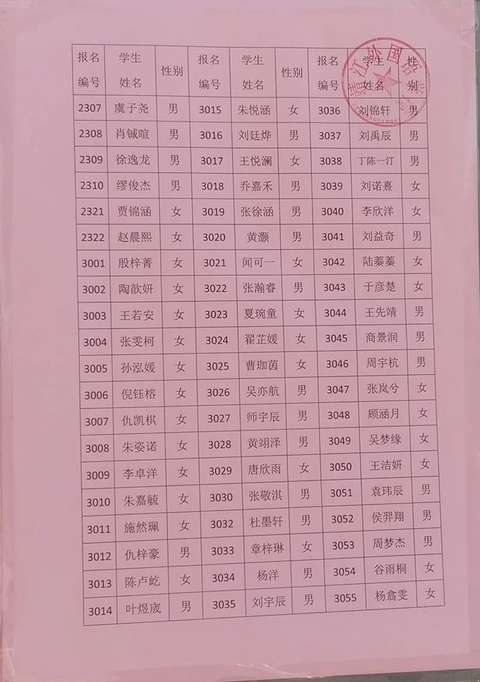 报名编号 学生姓名 性别 报名编号 学生姓名 性别 报名编号 学生姓名 性别
2307 虞子尧 男 3015 朱悦涵 女 3036 刘锦轩 男
2308 肖铖暄 男 3016 刘廷烨 男 3037 刘禹辰 男
2309 徐逸龙 男 3017 王悦澜 女 3038 丁陈一汀 男
2310 缪俊杰 男 3018 乔嘉禾 男 3039 刘诺熹 女
2321 贾锦涵 女 3019 张徐涵 男 3040 李欣洋 女
2322 赵晨熙 女 3020 黄灏 男 3041 刘益奇 男
3001 殷梓菁 女 3021 闻可一 女 3042 陆蓁蓁 女
3002 陶歆妍 女 3022 张瀚睿 男 3043 于彦楚 女
3003 王若安 女 3023 夏琬童 女 3044 王先靖 男
3004 张雯柯 女 3024 翟芷媛 女 3045 商景润 男
3005 孙泓媛 女 3025 曹珈茵 女 3046 周宇杭 男
3006 倪钰榕 女 3026 吴亦航 男 3047 张岚兮 女
3007 仇凯棋 女 3027 师宇辰 男 3048 顾涵月 女
3008 朱姿诺 女 3028 黄翊泽 男 3049 吴梦缘 女
3009 李卓洋 女 3029 唐欣雨 女 3050 王洁妍 女
3010 朱嘉毓 女 3030 张敬淇 男 3051 袁玮辰 男
3011 施然珮 女 3032 杜墨轩 男 3052 侯羿翔 男
3012 仇梓豪 男 3033 章梓琳 女 3053 周梦杰 男
3013 陈卢屹 女 3034 杨洋 男 3054 谷雨桐 女
3014 叶煜宬 男 3035 刘宇辰 男 3055 杨翕雯 女